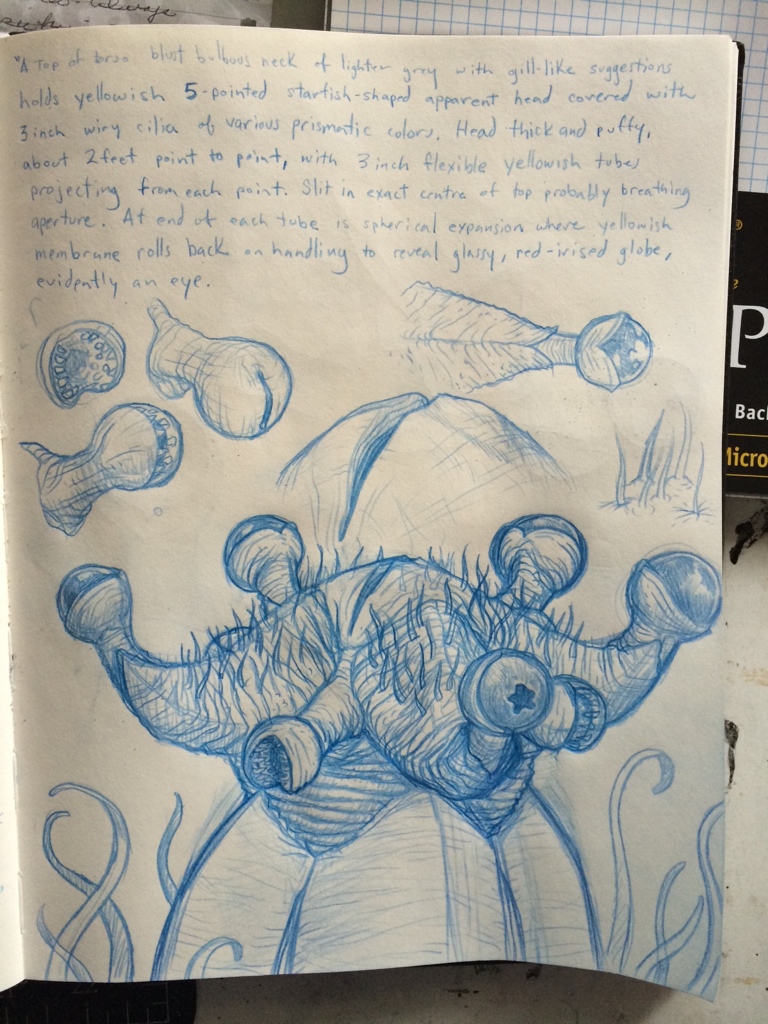 always
"A Top of torso blunt bulbous neck of lighter grey with gill-like suggestions
holds yellowish 5-pointed starfish-shaped apparent head covered with
3 inch wiry cilia of various prismatic colors. Head thick and puffy,
about 2 feet point to point, with 3 inch flexible yellowish tubes
projecting from each point. Slit in exact centre of top probably breathing
aperture. At end of each tube is spherical expansion where yellowish
membrane rolls back on handling to reveal glassy, red-irised globe,
evidently an eye.
P
Bac
Micro